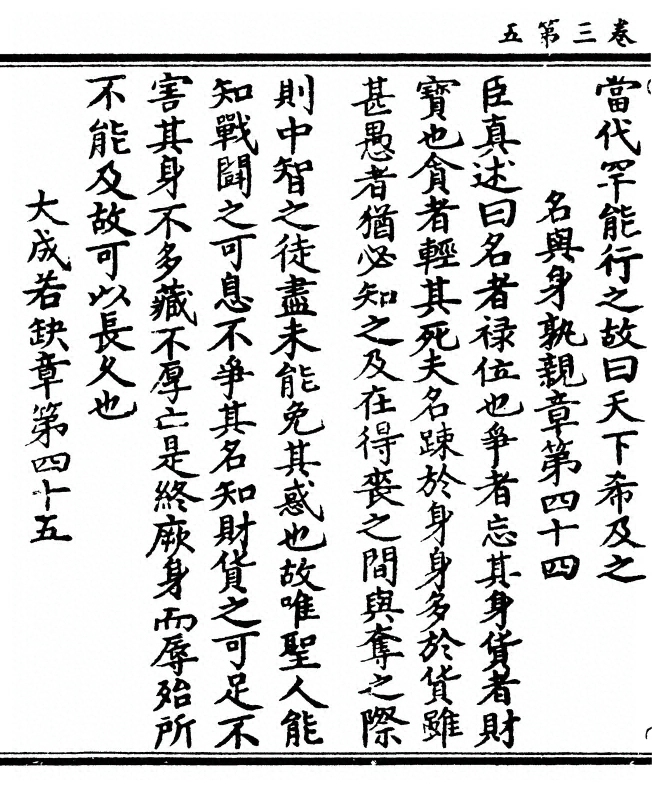 卷三第五
當代罕能行之故曰天下希及之
名與身孰親章第四十四
臣真述曰名者祿位也爭者忘其身貨者財
寶也貪者輕其死夫名踈於身身多於貨雖
甚愚者猶必知之及在得喪之間與奪之際
則中智之徒盡未能免其惑也故唯聖人能
知戰鬪之可息不爭其名知財貨之可足不
害其身不多藏不厚亡是終厥身而辱殆所
不能及故可以長久也
大成若缺章第四十五